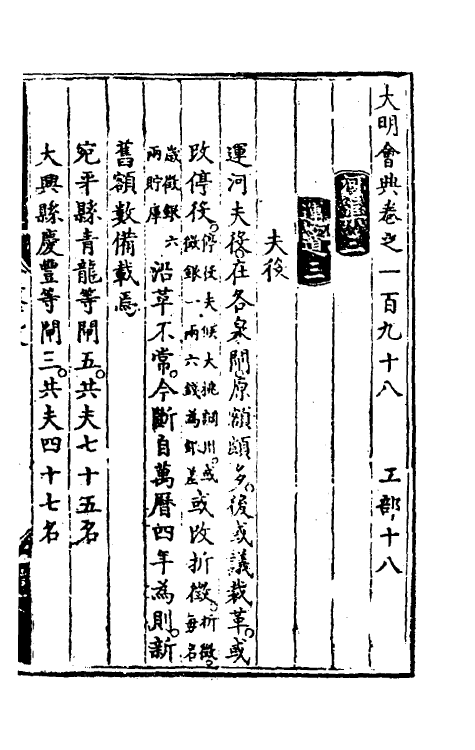 大明會典卷之一百九十八　工部十八
河渠三
運道三
夫役
運河夫役。在各泉閘。原額頗多。後或議裁革。或
改停役。停役夫候大挑調用。或徵銀一兩六錢為部差或改折徵。折徵。每名
歲徵銀六兩貯庫沿革不常。今斷自萬曆四年為則。新
舊額數備載焉
宛平縣青龍等閘五。共夫七十五名
大興縣慶豐等閘三。共夫四十七名